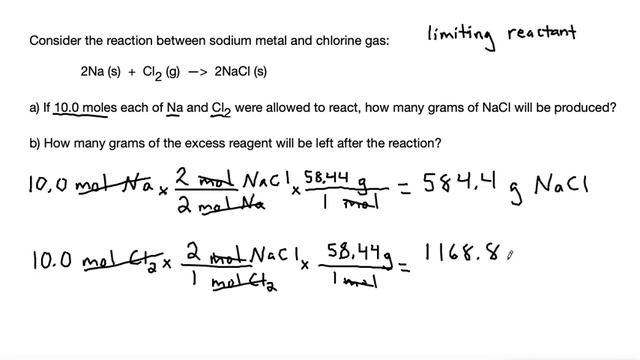 limiting reactant
Consider the reaction between sodium metal and chlorine gas:
2Na (s) + Cl2 (g) —> 2NaCl (s)
a) If 10.0 moles each of Na and Cl2 were allowed to react, how many grams of NaCl will be produced?
b) How many grams of the excess reagent will be left after the reaction?
10.0 mol Na x 2 mol NaCl / 2 mol Na x 58.44 g / 1 mol = 584.4 g NaCl
10.0 mol Cl2 x 2 mol NaCl / 1 mol Cl2 x 58.44g / 1 mol = 1168.8